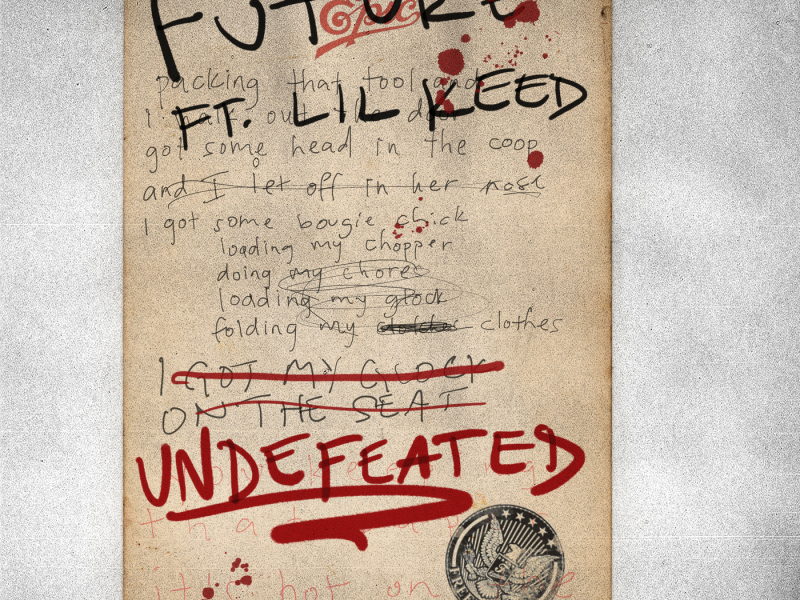 FUTURE
Epic
packing that tool and
FT. LIL KEED
I walk out the door
got some head in the coop
and I let off in her nose
I got some bougie chick
loading my chopper
doing my chores
loading my glock
folding my clothes
I GOT MY GLOCK
ON THE SEAT
UNDEFEATED
it's hot on